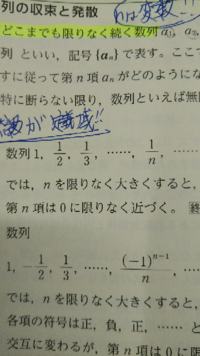 列の収束と発散
nは変数!!
どこまでも限りなく続く数列 a₁, a₂,
列 といい,記号 {aₙ} で表す。ここで
すに従って第n項 aₙ がどのような
特に断らない限り,数列といえば無限
が
!!
数列 1, 1/2, 1/3, ……, 1/n, ……
では, n を限りなく大きくすると,
第n項は0に限りなく近づく。 終
数列
1, -1/2, 1/3, ……, (-1)ⁿ⁻¹/n, ……
では, n を限りなく大きくすると,
各項の符号は正, 負, 正, …… と
交互に変わるが, 第n項は0に限